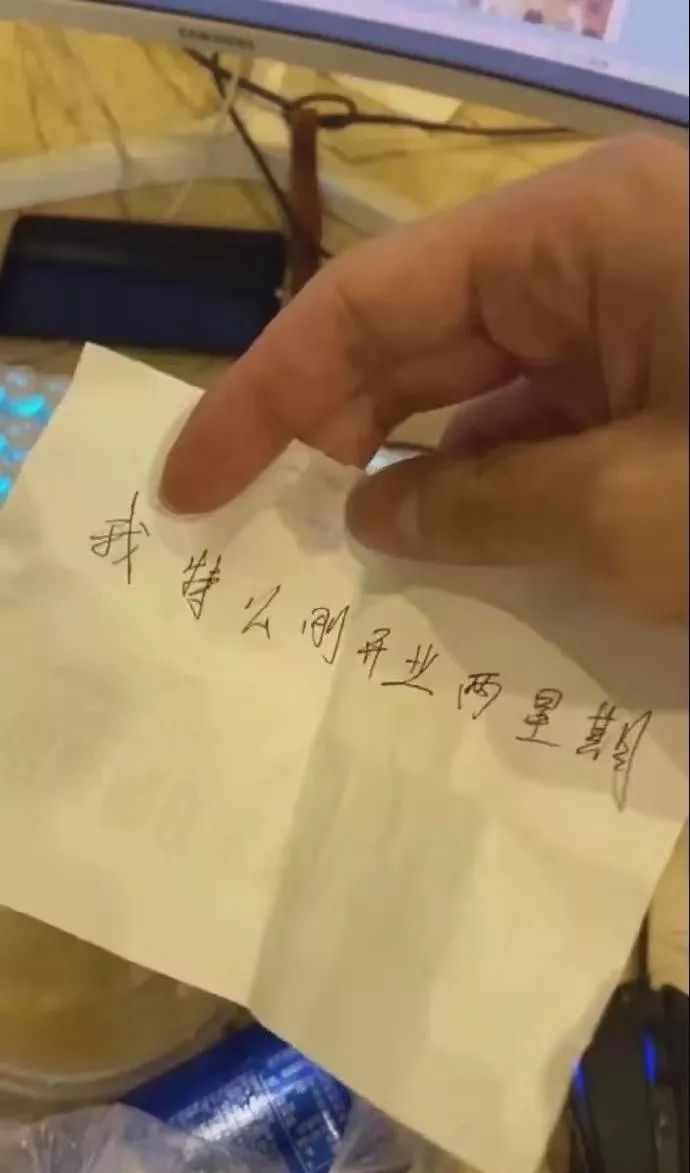 SAMSUNG
我特么刚开业两星期